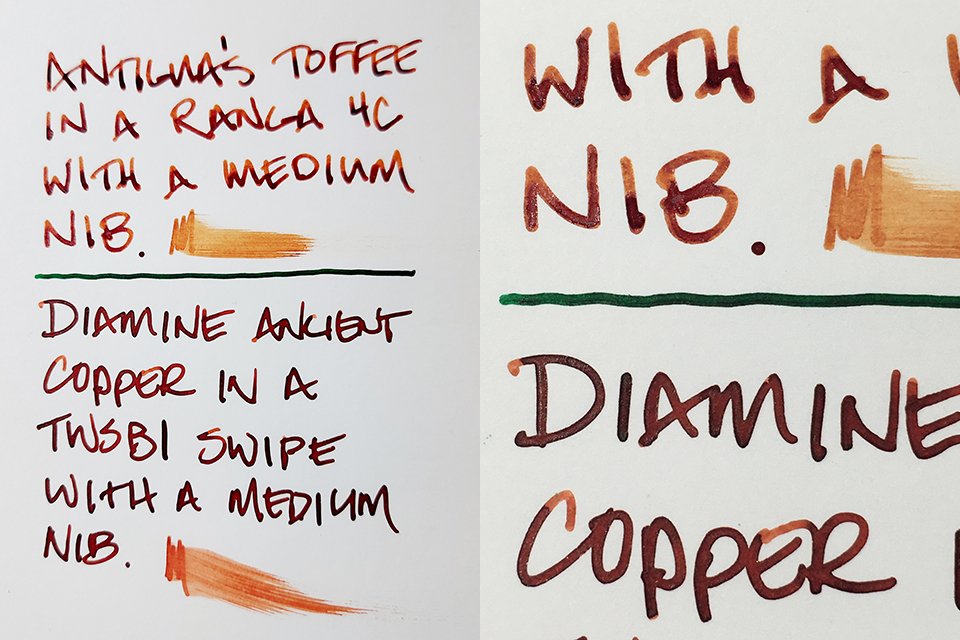 ANTIGUA'S TOFFEE
IN A RANGA 4C
WITH A MEDIUM
NIB.
DIAMINE ANCIENT
COPPER IN A
TWSBI SWIPE
WITH A MEDIUM
NIB.
WITH A
NIB.
DIAMINE
COPPER